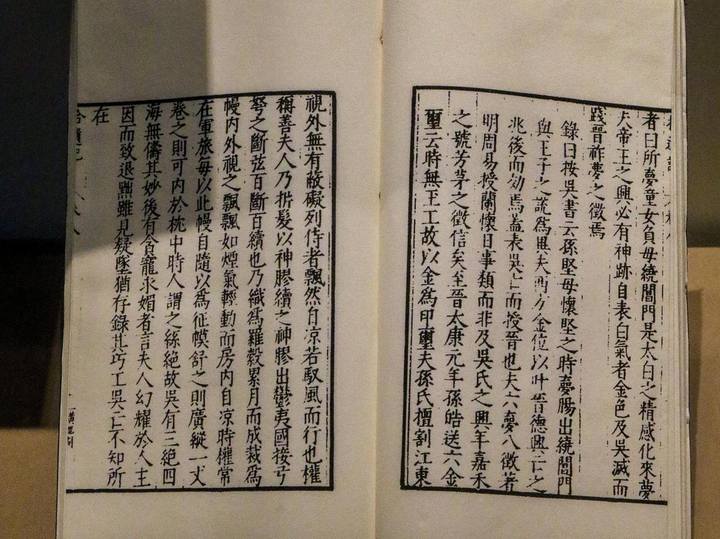 者曰所夢童女負母繞閶門是太白之精感化來夢
夫帝王之興必有神跡自表白氣者金色及吳滅而
踐晉祚夢之徵焉
錄曰按吳書云孫堅母懷堅之時夢腸出繞閶門
與王子之說為異夫西方金位以叶晉德興亡之
兆後而効焉蓋表吳亡而授晉也夫六夢八徵著
明周易授蘭懷日事類而非及吳氏之興年嘉禾
之號芳茅之徵信矣至晉太康元年孫皓送六金
璽云時無王工故以金為印璽夫孫氏擅割江東
視外無有蔽礙列侍者飄然自凉若馭風而行也權
稱善夫人乃折髮以神膠續之神膠出鬱夷國接弓
弩之斷弦百斷百續也乃織為羅縠累月而成裁為
幔內外視之飄飄如煙氣輕動而房內自凉時權常
在軍旅每以此幔自隨以為征幙舒之則廣縱一丈
卷之則可內於枕中時人謂之絲絕故吳有三絕四
海無儔其妙後有貪寵求媚者言夫人幻耀於人主
因而致退黜雖見疑墜猶存錄其巧工吳亡不知所
在